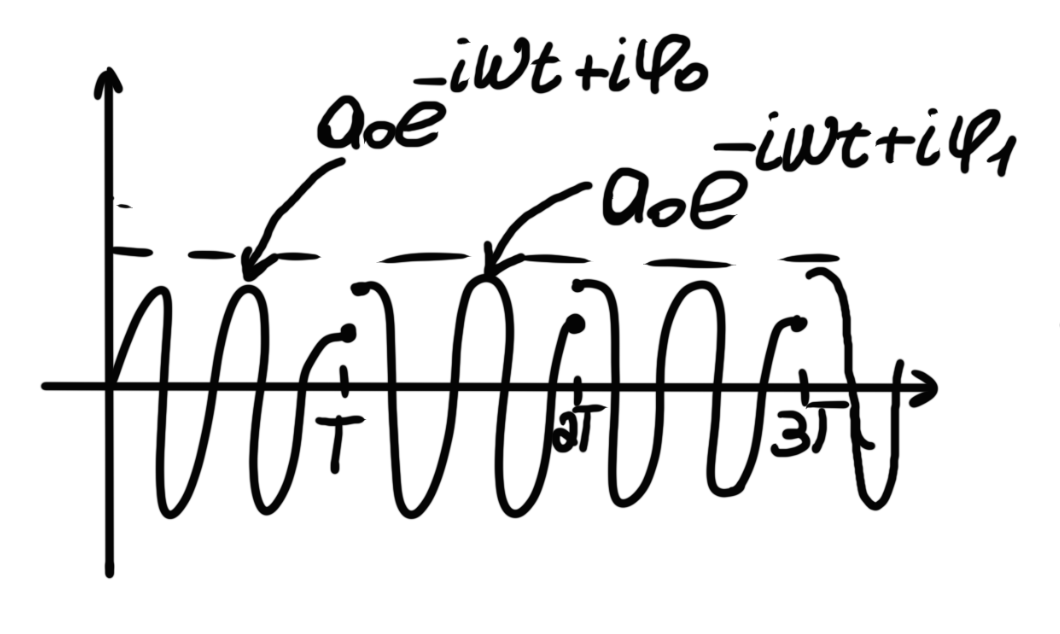 a₀e^{-iωt+iφ₀}
a₀e^{-iωt+iφ₁}
T 2T 3T